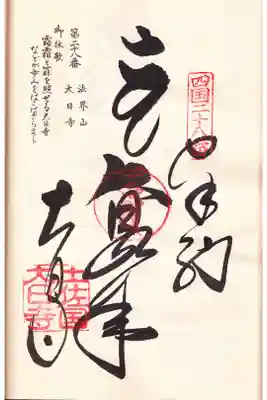 四国二十八番
奉納
第二十八番
法界山
大日寺
御詠歌
露霜と罪を照せる大日寺
などか歩みをはこばざらまし
大日寺
土佐国
大日寺